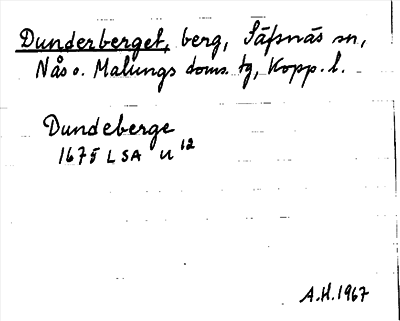 Dunderberget, berg, Säfsnäs sn,
Nås o. Malungs doms. tg, Kopp. l.
Dundeberge
1675 LSA U 12
A.H. 1967